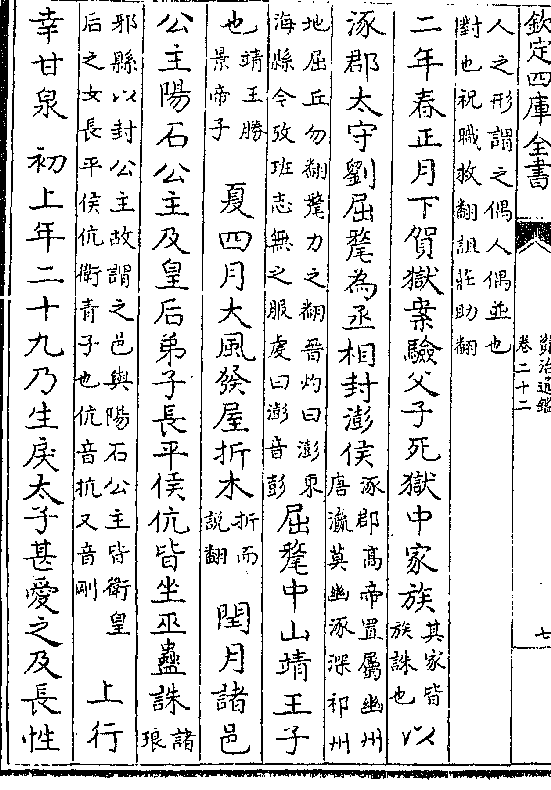 欽定四庫全書
資治通鑑
卷二十二
七
人之形謂之偶人偶並也
對也祝職救翻詛莊助翻
二年春正月下賀獄案驗父子死獄中家族其家皆族誅也以
涿郡太守劉屈氂為丞相封澎侯涿郡高帝置屬幽州唐瀛莫幽涿深祁州
地屈丘勿翻氂力之翻晉灼曰澎東海縣令攷班志無之服虔曰澎音彭屈氂中山靖王子
也靖王勝景帝子 夏四月大風發屋折木折而説翻 閏月諸邑
公主陽石公主及皇后弟子長平侯伉皆坐巫蠱誅諸琅
邪縣以封公主故謂之邑與陽石公主皆衛皇后之女長平侯伉衛青子也伉音抗又音剛 上行
幸甘泉 初上年二十九乃生戾太子甚愛之及長性